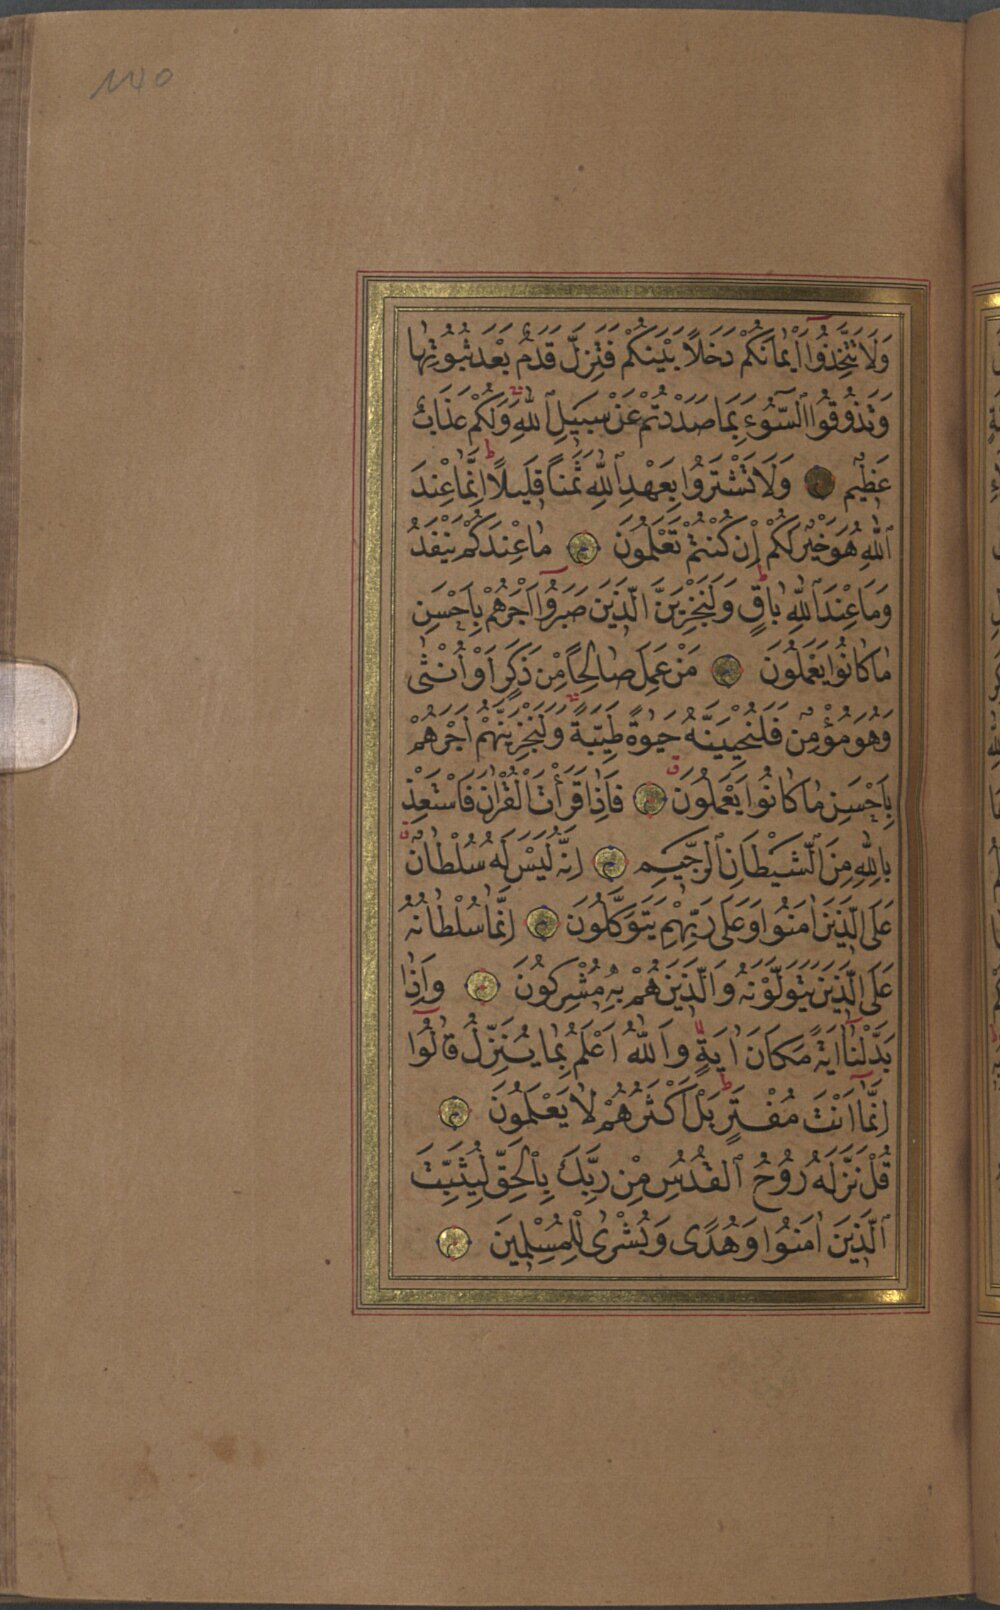 140
وَلَا تَتَّخِذُوا اَيْمَانَكُمْ دَخَلًا بَيْنَكُمْ فَتَزِلَّ قَدَمٌ بَعْدَ ثُبُوتِهَا
وَتَذُوقُوا السُّوءَ بِمَا صَدَدْتُمْ عَنْ سَبِيلِ اللّٰهِ وَلَكُمْ عَذَابٌ
عَظِيمٌ وَلَا تَشْتَرُوا بِعَهْدِ اللّٰهِ ثَمَنًا قَلِيلًا اِنَّمَا عِنْدَ
اللّٰهِ هُوَ خَيْرٌ لَكُمْ اِنْ كُنْتُمْ تَعْلَمُونَ مَا عِنْدَكُمْ يَنْفَدُ
وَمَا عِنْدَ اللّٰهِ بَاقٍ وَلَنَجْزِيَنَّ الَّذِينَ صَبَرُوا اَجْرَهُمْ بِاَحْسَنِ
مَا كَانُوا يَعْمَلُونَ مَنْ عَمِلَ صَالِحًا مِنْ ذَكَرٍ اَوْ اُنْثٰى
وَهُوَ مُؤْمِنٌ فَلَنُحْيِيَنَّهُ حَيٰوةً طَيِّبَةً وَلَنَجْزِيَنَّهُمْ اَجْرَهُمْ
بِاَحْسَنِ مَا كَانُوا يَعْمَلُونَ فَاِذَا قَرَأْتَ الْقُرْاٰنَ فَاسْتَعِذْ
بِاللّٰهِ مِنَ الشَّيْطَانِ الرَّجِيمِ اِنَّهُ لَيْسَ لَهُ سُلْطَانٌ
عَلَى الَّذِينَ اٰمَنُوا وَعَلٰى رَبِّهِمْ يَتَوَكَّلُونَ اِنَّمَا سُلْطَانُهُ
عَلَى الَّذِينَ يَتَوَلَّوْنَهُ وَالَّذِينَ هُمْ بِهِ مُشْرِكُونَ وَاِذَا
بَدَّلْنَا اٰيَةً مَكَانَ اٰيَةٍ وَاللّٰهُ اَعْلَمُ بِمَا يُنَزِّلُ قَالُوا
اِنَّمَا اَنْتَ مُفْتَرٍ بَلْ اَكْثَرُهُمْ لَا يَعْلَمُونَ
قُلْ نَزَّلَهُ رُوحُ الْقُدُسِ مِنْ رَبِّكَ بِالْحَقِّ لِيُثَبِّتَ
الَّذِينَ اٰمَنُوا وَهُدًى وَبُشْرٰى لِلْمُسْلِمِينَ